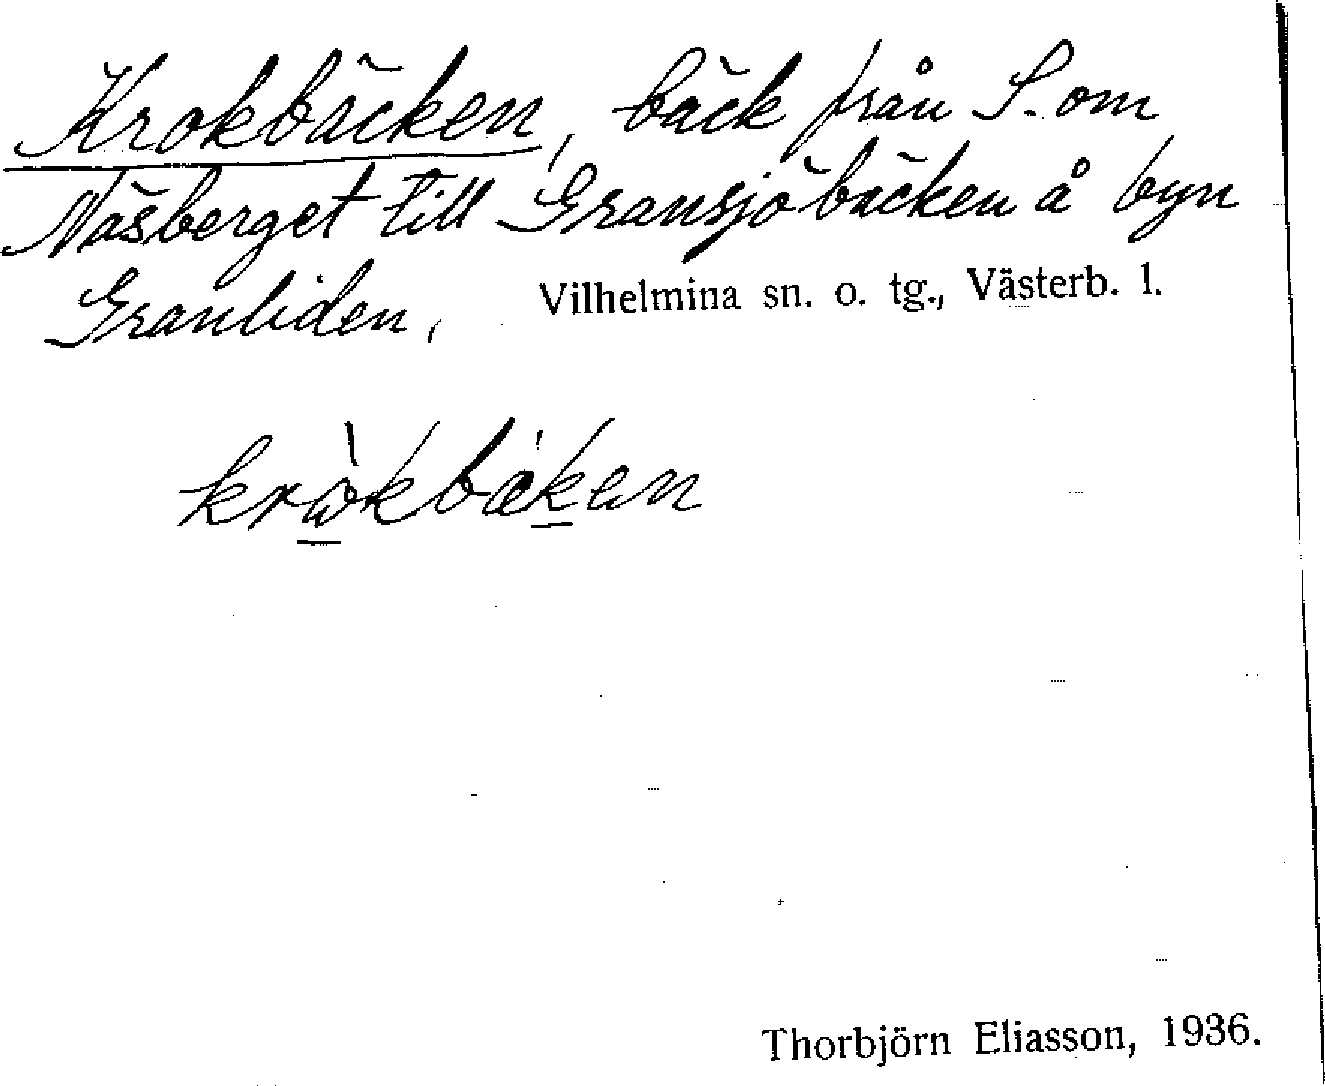 Krokbäcken, bäck från S. om
Näsberget till Gransjöbäcken å byn
Granliden, Vilhelmina sn. o. tg., Västerb. l.
krὼkbäken
Thorbjörn Eliasson, 1936.